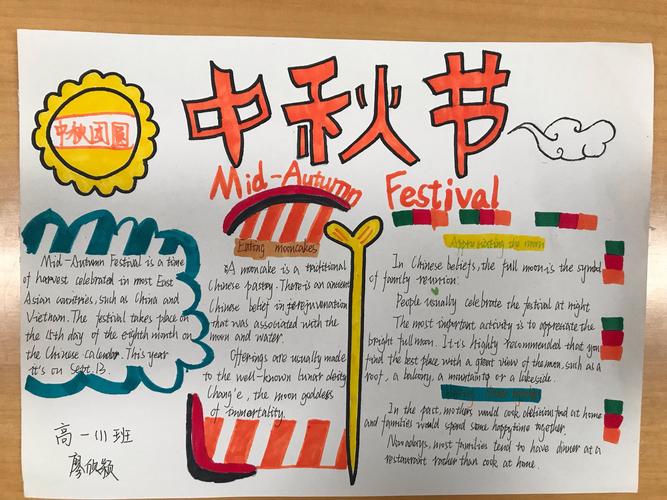 中秋节
中秋团圆
Mid-Autumn Festival
Mid-Autumn Festival is a time
of harvest celebrated in most East
Asian countries, such as China and
Vietnam. The festival takes place on
the 15th day of the eighth month on
the Chinese calendar. This year
it's on Sept. 13.
高一 (1) 班
Eating mooncakes
A mooncake is a traditional
Chinese pastry. There is an ancient
Chinese belief in rejuvenation
that was associated with the
moon and water.
Offerings are usually made
to the well-known lunar deity
Chang'e, the moon goddess
of immortality.
Appreciating the moon
In Chinese beliefs, the full moon is the symbol
of family reunion.
People usually celebrate the festival at night
The most important activity is to appreciate the
bright full moon. It is highly recommended that you
find the best place with a great view of the moon, such as a
roof, a balcony, a mountaintop or a lakeside.
In the past, mothers would cook delicious food at home
and families would spend some happy time together.
Nowadays, most families tend to have dinner at a
restaurant rather than cook at home.